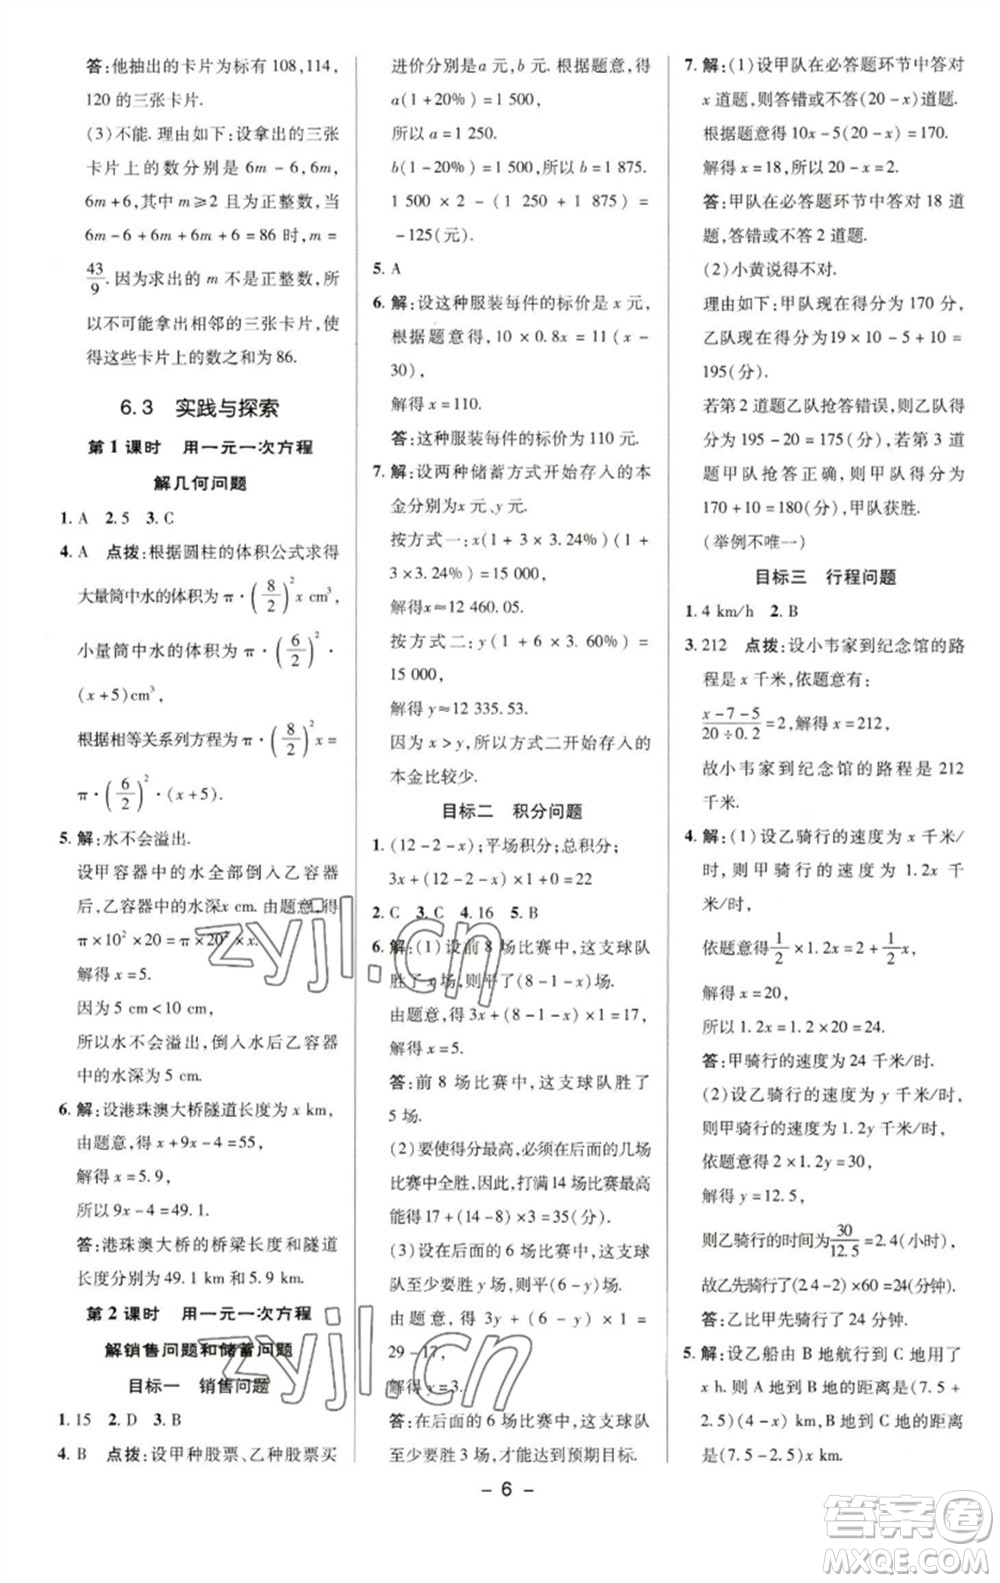 答:他抽出的卡片为标有 108,114,
120 的三张卡片.
(3)不能. 理由如下:设拿出的三张
卡片上的数分别是 6m-6,6m,
6m+6,其中 m≥2 且为正整数,当
6m-6+6m+6m+6=86 时,m=
43/9. 因为求出的 m 不是正整数,所
以不可能拿出相邻的三张卡片,使
得这些卡片上的数之和为 86.
6.3 实践与探索
第 1 课时 用一元一次方程
解几何问题
1. A 2. 5 3. C
4. A 点拨:根据圆柱的体积公式求得
大量筒中水的体积为 π·(8/2)²x cm³,
小量筒中水的体积为 π·(6/2)²
·(x+5)cm³,
根据相等关系列方程为 π·(8/2)²x=
π·(6/2)²·(x+5).
5. 解:水不会溢出.
设甲容器中的水全部倒入乙容器
后,乙容器中的水深x cm. 由题意,得
π×10²×20=π×20²×x.
解得 x=5.
因为 5 cm<10 cm,
所以水不会溢出,倒入水后乙容器
中的水深为 5 cm.
6. 解:设港珠澳大桥隧道长度为 x km,
由题意,得 x+9x-4=55,
解得 x=5.9,
所以 9x-4=49.1.
答:港珠澳大桥的桥梁长度和隧道
长度分别为 49.1 km 和 5.9 km.
第 2 课时 用一元一次方程
解销售问题和储蓄问题
目标一 销售问题
1. 15 2. D 3. B
4. B 点拨:设甲种股票、乙种股票买
进价分别是 a 元,b 元. 根据题意,得
a(1+20%)=1 500,
所以 a=1 250.
b(1-20%)=1 500,所以 b=1 875.
1 500×2-(1 250+1 875)=
-125(元).
5. A
6. 解:设这种服装每件的标价是 x 元,
根据题意得,10×0.8x=11(x-
30),
解得 x=110.
答:这种服装每件的标价为 110 元.
7. 解:设两种储蓄方式开始存入的本
金分别为x 元、y 元.
按方式一:x(1+3×3.24%)(1+
3×3.24%)=15 000,
解得x≈12 460.05.
按方式二:y(1+6×3.60%)=
15 000,
解得 y≈12 335.53.
因为 x>y,所以方式二开始存入的
本金比较少.
目标二 积分问题
1. (12-2-x);平场积分;总积分;
3x+(12-2-x)×1+2×0=22
2. C 3. C 4. 16 5. B
6. 解:(1)设前 8 场比赛中,这支球队
胜了 x 场,则平了(8-1-x)场.
由题意,得 3x+(8-1-x)×1=17,
解得 x=5.
答:前 8 场比赛中,这支球队胜了
5 场.
(2)要使得分最高,必须在后面的几场
比赛中全胜,因此,打满 14 场比赛最高
能得 17+(14-8)×3=35(分).
(3)设在后面的 6 场比赛中,这支球
队至少要胜 y 场,则平(6-y)场.
由题意,得 3y+(6-y)×1=
29-17,
解得 y=3.
答:在后面的 6 场比赛中,这支球队
至少要胜 3 场,才能达到预期目标.
7. 解:(1)设甲队在必答题环节中答对
x 道题,则答错或不答(20-x)道题.
根据题意得 10x-5(20-x)=170.
解得 x=18,所以 20-x=2.
答:甲队在必答题环节中答对 18 道
题,答错或不答 2 道题.
(2)小黄说得不对.
理由如下:甲队现在得分为 170 分,
乙队现在得分为 19×10-5+10=
195(分).
若第 2 道题乙队抢答错误,则乙队
得分为 195-20=175(分),若第 3
道题甲队抢答正确,则甲队得分为
170+10=180(分),故甲队获胜.
(举例不唯一)
目标三 行程问题
1. 4 km/h 2. B
3. 212 点拨:设小韦家到纪念馆的路
程是 x 千米,依题意有:
(x-7-5)/(20÷0.2)=2,解得 x=212,
故小韦家到纪念馆的路程是 212
千米.
4. 解:(1)设乙骑行的速度为 x 千米/
时,则甲骑行的速度为 1.2x 千米/
时,
依题意得 1/2×1.2x=2+1/2x,
解得 x=20,
所以 1.2x=1.2×20=24.
答:甲骑行的速度为 24 千米/时.
(2)设乙骑行的速度为 y 千米/时,
则甲骑行的速度为 1.2y 千米/时,
依题意得 2×1.2y-y... 
解得 y=12.5,
则乙骑行的时间为 30/12.5=2.4(小时),
故乙先骑行了(2.4-2)×60=24(分钟).
答:乙比甲先骑行了 24 分钟.
5. 解:设乙船由 B 地航行到 C 地用了
x h. 则 A 地到 B 地的距离是(7.5+
2.5)(4-x)km,B 地到 C 地的距离
是(7.5-2.5)x km.
- 6 -
zyjl.cn
zyjl.cn
作业帮
MXQE.COM